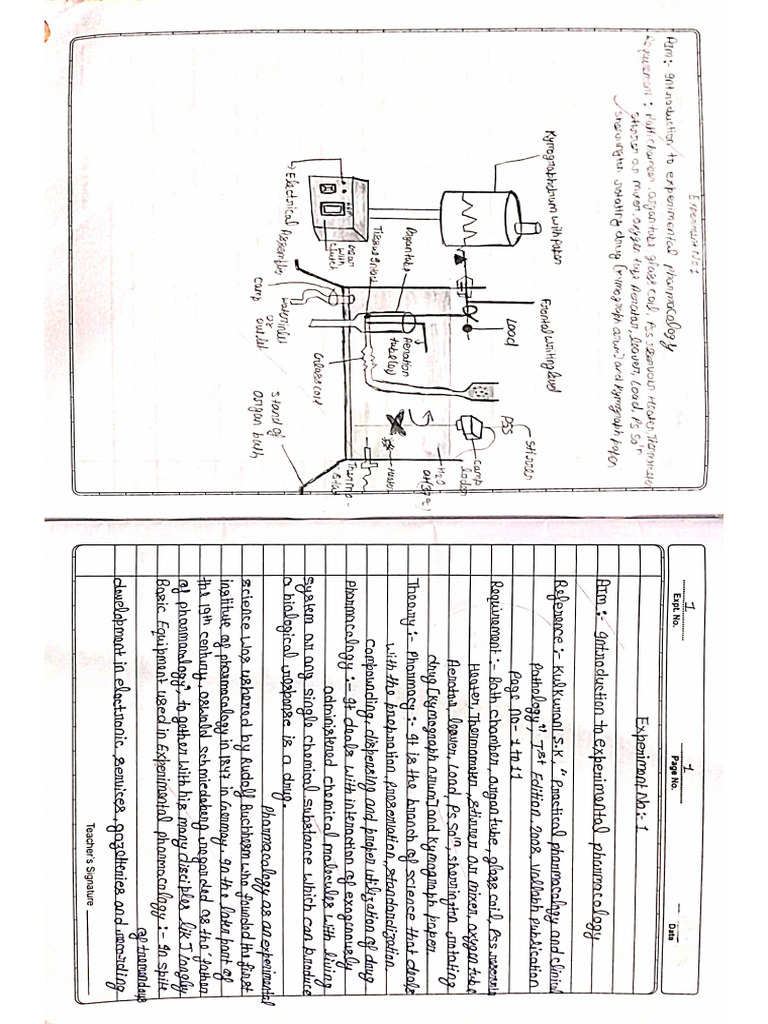 Experiment No 1
Aim :- Introduction to experimental pharmacology
Requirement : Bath chamber, organ tube glass coil, Pss reservoir Heater, Thermometer
stirrer or mixer, oxygen tube Aerator, leaver, Load, Ps so'n
sherrington rotating drug (kymograph drum) and kymograph paper
Kymographdrum with paper
Frontal writing level
Load
PSS
Stirrer
camp
loader
H2O
at (37°C)
Heater
Thermo-
stat
Organ tube
Tissue
Aeration
tube (O2)
Glass coil
Electrical Assembly
Gear
with
clutch
camp
Water inlet
or
outlet
Stand of
organ bath
1
Expt. No.
1
Page No.
Date
Experiment No :- 1
Aim :- Introduction to experimental pharmacology
Reference :- Kulkurani S.K, "Practical pharmacology and clinical
Pathology", 1st Edition, 2008, Vallabh publication
Page No- 1 to 11
Requirement :- Bath chamber, organ tube, glass coil, Pss reservoir
Heater, Thermometer, stirrer or mixer, oxygen tube
Aerator, leaver, Load, Ps so'n, sherrington rotating
drug [Kymograph drum] and Kymograph paper
Theory :- Pharmacy :- It is the branch of science that deals
with the prepration, preservation, standardization
Compounding, dispensing and proper utilization of drug
Pharmacology :- It deals with interaction of exogenously
administered chemical molecules with living
system or any single chemical substance which can produce
a biological response is a drug.
Pharmacology as an experimental
science was ushered by Rudolf Buchheim who founded the first
institute of pharmacology in 1847 in Germay. In the late part of
the 19th century, oswald schmiedeberg regarded as the 'father
of pharmacology', to gather with his many disciples lik J longly
Basic Equipment used in Experimental pharmacology :- In spite
of tremendous
development in electronic, services, gazotteries and recording
Teacher's Signature